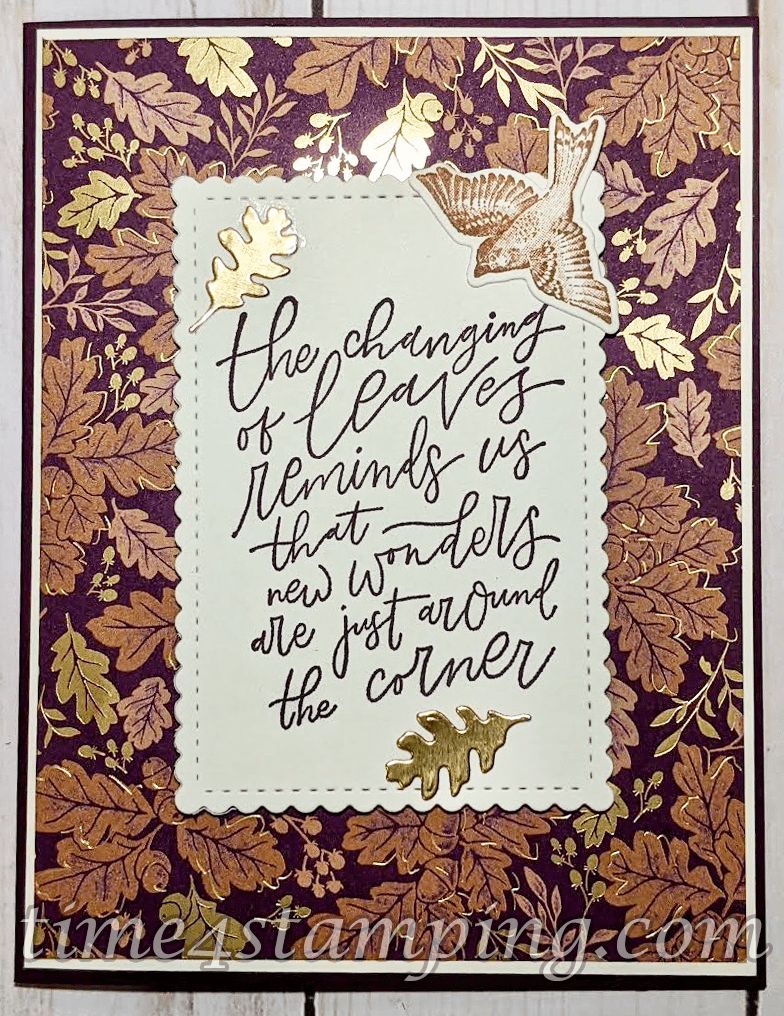 the changing
of leaves
reminds us
that wonders
new
are just around
the corner
time4stamping.com